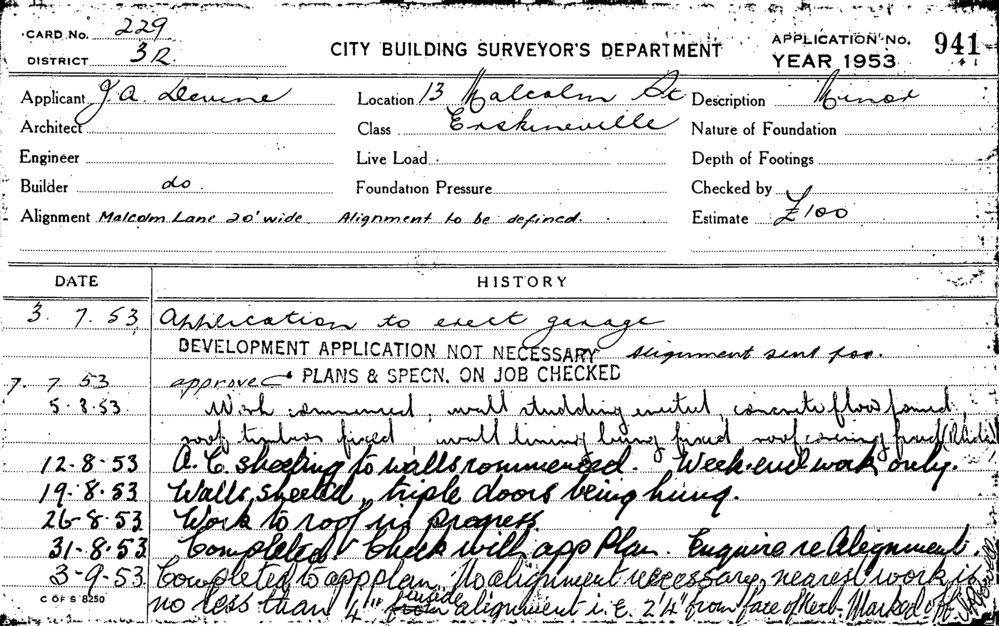 CARD No. 229
DISTRICT 3R.
CITY BUILDING SURVEYOR'S DEPARTMENT
APPLICATION No. 941
YEAR 1953
Applicant J. A. Devine Location 13 Malcolm St Description Minor
Architect Class Erskineville Nature of Foundation
Engineer Live Load Depth of Footings
Builder do. Foundation Pressure Checked by
Alignment Malcolm Lane 20' wide. Alignment to be defined. Estimate £100
DATE HISTORY
3. 7. 53 Application to erect garage
DEVELOPMENT APPLICATION NOT NECESSARY Alignment sent for.
7. 7. 53 approved PLANS & SPECN. ON JOB CHECKED
5-8-53 Work commenced, wall studding erected, concrete floor formed,
roof timbers fixed wall lining being fixed roof covering fixed
12-8-53 A.C. sheeting to walls commenced. Week-end work only.
19-8-53 Walls sheeted, triple doors being hung.
26-8-53 Work to roof in progress
31-8-53 Completed. Check with app Plan. Enquire re Alignment.
3-9-53 Completed to app plan. No alignment necessary, nearest work is
no less than 4" from inside alignment i.e. 2'4" from face of kerb. Marked off.
C OF S 8250